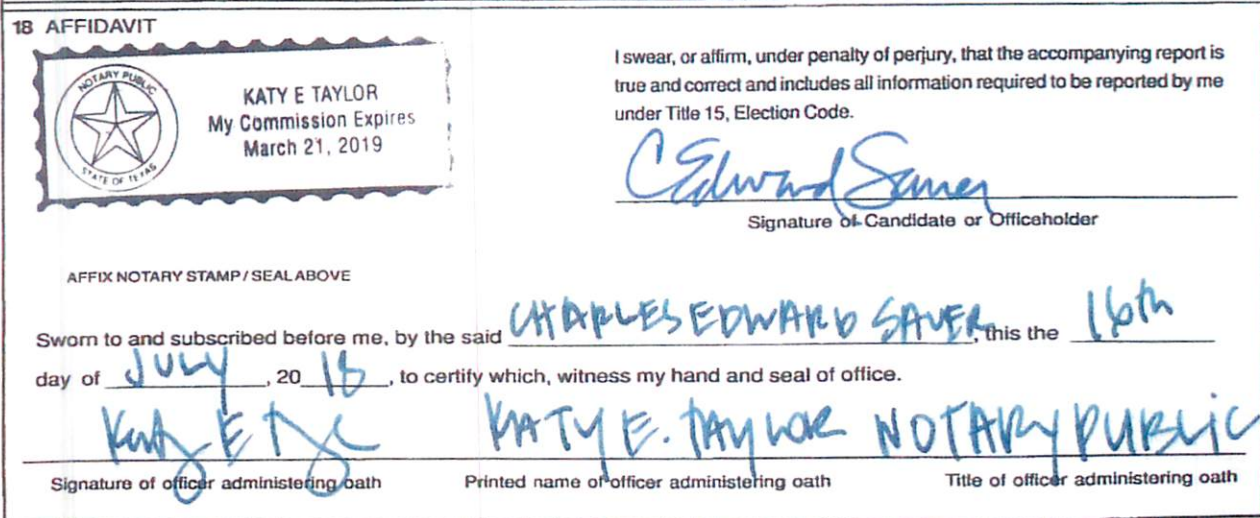 18 AFFIDAVIT
NOTARY PUBLIC
STATE OF TEXAS
KATY E TAYLOR
My Commission Expires
March 21, 2019
I swear, or affirm, under penalty of perjury, that the accompanying report is
true and correct and includes all information required to be reported by me
under Title 15, Election Code.
C Edward Sauer
Signature of Candidate or Officeholder
AFFIX NOTARY STAMP / SEAL ABOVE
Sworn to and subscribed before me, by the said CHARLES EDWARD SAUER, this the 16th
day of JULY, 20 18, to certify which, witness my hand and seal of office.
Katy E Taylor KATY E. TAYLOR NOTARY PUBLIC
Signature of officer administering oath Printed name of officer administering oath Title of officer administering oath